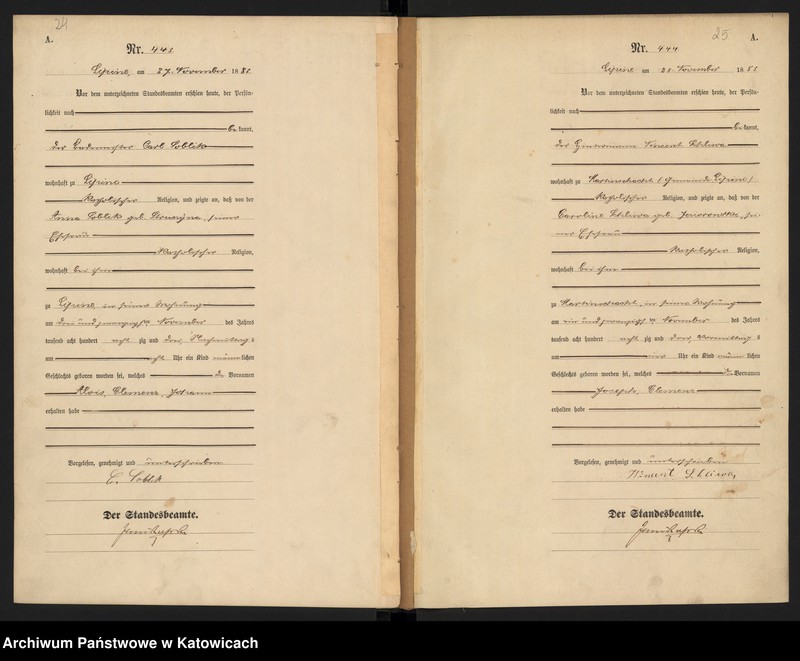 24
A.
Nr. 443
Lipine, am 27. November 1883
Vor dem unterzeichneten Standesbeamten erschien heute, der Persön-
lichkeit nach
be kannt,
der Carl Soblik
wohnhaft zu Lipine
katholischer Religion, und zeigte an, daß von der
Anna Soblik geb. seiner
Ehefrau
katholischer Religion,
wohnhaft bei ihm
zu Lipine, in seiner Wohnung
am drei und zwanzigsten November des Jahres
tausend acht hundert acht zig und drei, Nachmittags
um acht Uhr ein Kind männlichen
Geschlechts geboren worden sei, welches die Vornamen
Alois, Clemens, Johann
erhalten habe
Vorgelesen, genehmigt und unterschrieben
C. Soblik
Der Standesbeamte.
25
A.
Nr. 444
Lipine am November 1883
Vor dem unterzeichneten Standesbeamten erschien heute, der Persön-
lichkeit nach
be kannt,
der Vincent
wohnhaft zu Martinschacht (Gemeinde Lipine)
katholischer Religion, und zeigte an, daß von der
Caroline geb. sei-
ner Ehefrau
katholischer Religion,
wohnhaft bei ihm
zu Martinschacht, in seiner Wohnung
am ein und zwanzigsten November des Jahres
tausend acht hundert acht zig und drei, Vormittags
um vier Uhr ein Kind männlichen
Geschlechts geboren worden sei, welches die Vornamen
Joseph, Clemens
erhalten habe
Vorgelesen, genehmigt und unterschrieben
Der Standesbeamte.
Archiwum Państwowe w Katowicach